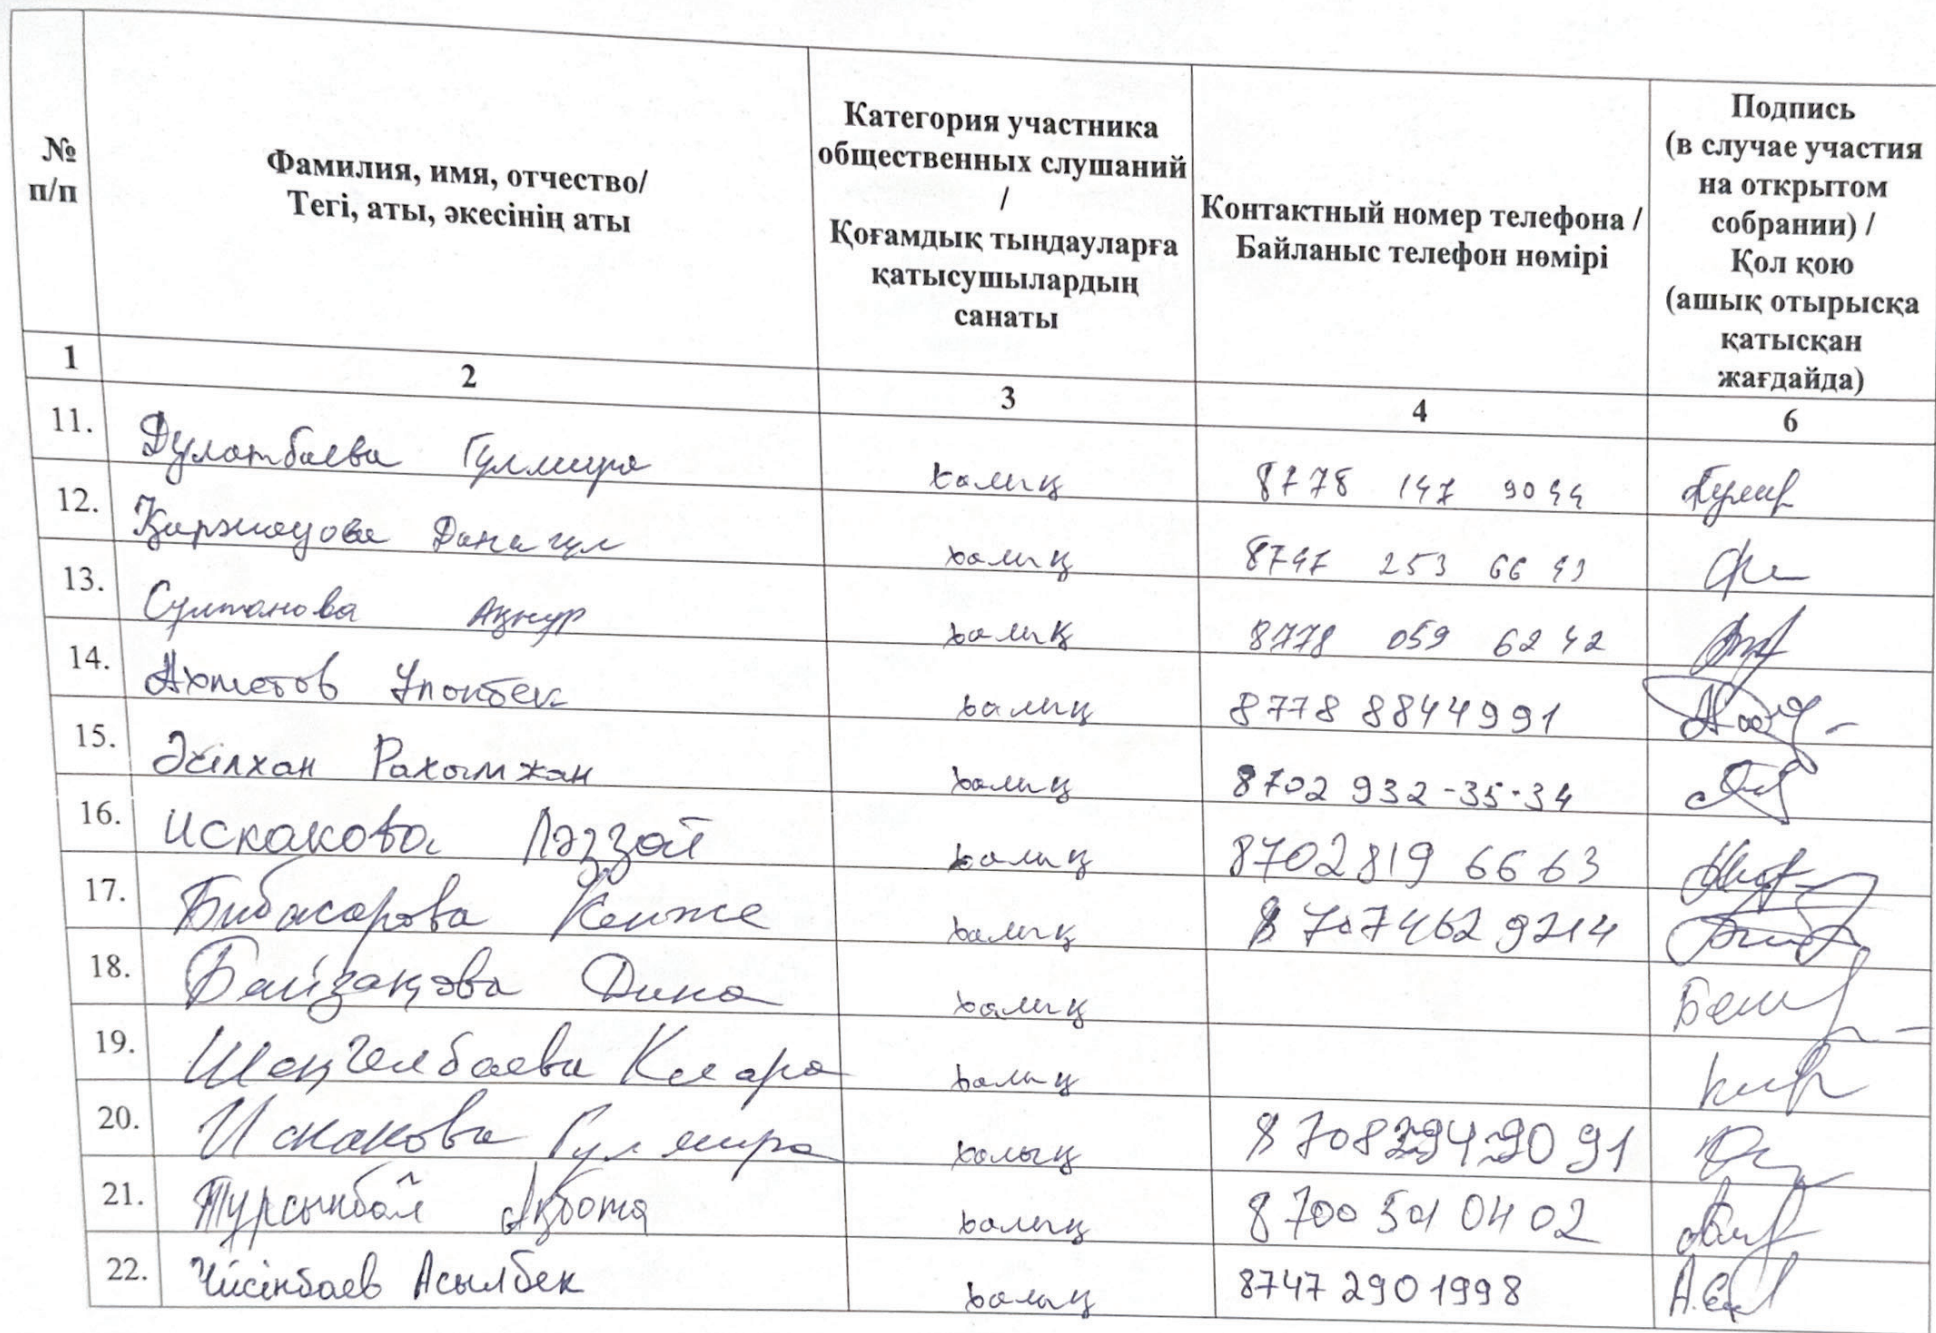 № п/п
Фамилия, имя, отчество/
Тегі, аты, әкесінің аты
Категория участника
общественных слушаний
/
Қоғамдық тыңдауларға
қатысушылардың
санаты
Контактный номер телефона /
Байланыс телефон нөмірі
Подпись
(в случае участия
на открытом
собрании) /
Қол қою
(ашық отырысқа
қатысқан
жағдайда)
1 2 3 4 6
11. Дулатбаева Гулмира халық 8778 147 9044
12. Данагул халық 8747 253 66 43
13. Султанова Ақнур халық 8778 059 62 42
14. Ахметов халық 8778 8844991
15. Әсілхан Рахымжан халық 8702 932-35-34
16. Искакова Ләззат халық 8702 819 66 63
17. Бибасарова Кенже халық 8 707 462 9214
18. Байзақова Дина халық
19. Шаңгелбаева Клара халық
20. Искакова Гулмира халық
21. Турсынбай Ақбота халық 8 700 501 04 02
22. Үйсінбаев Асылбек халық 8747 290 1998